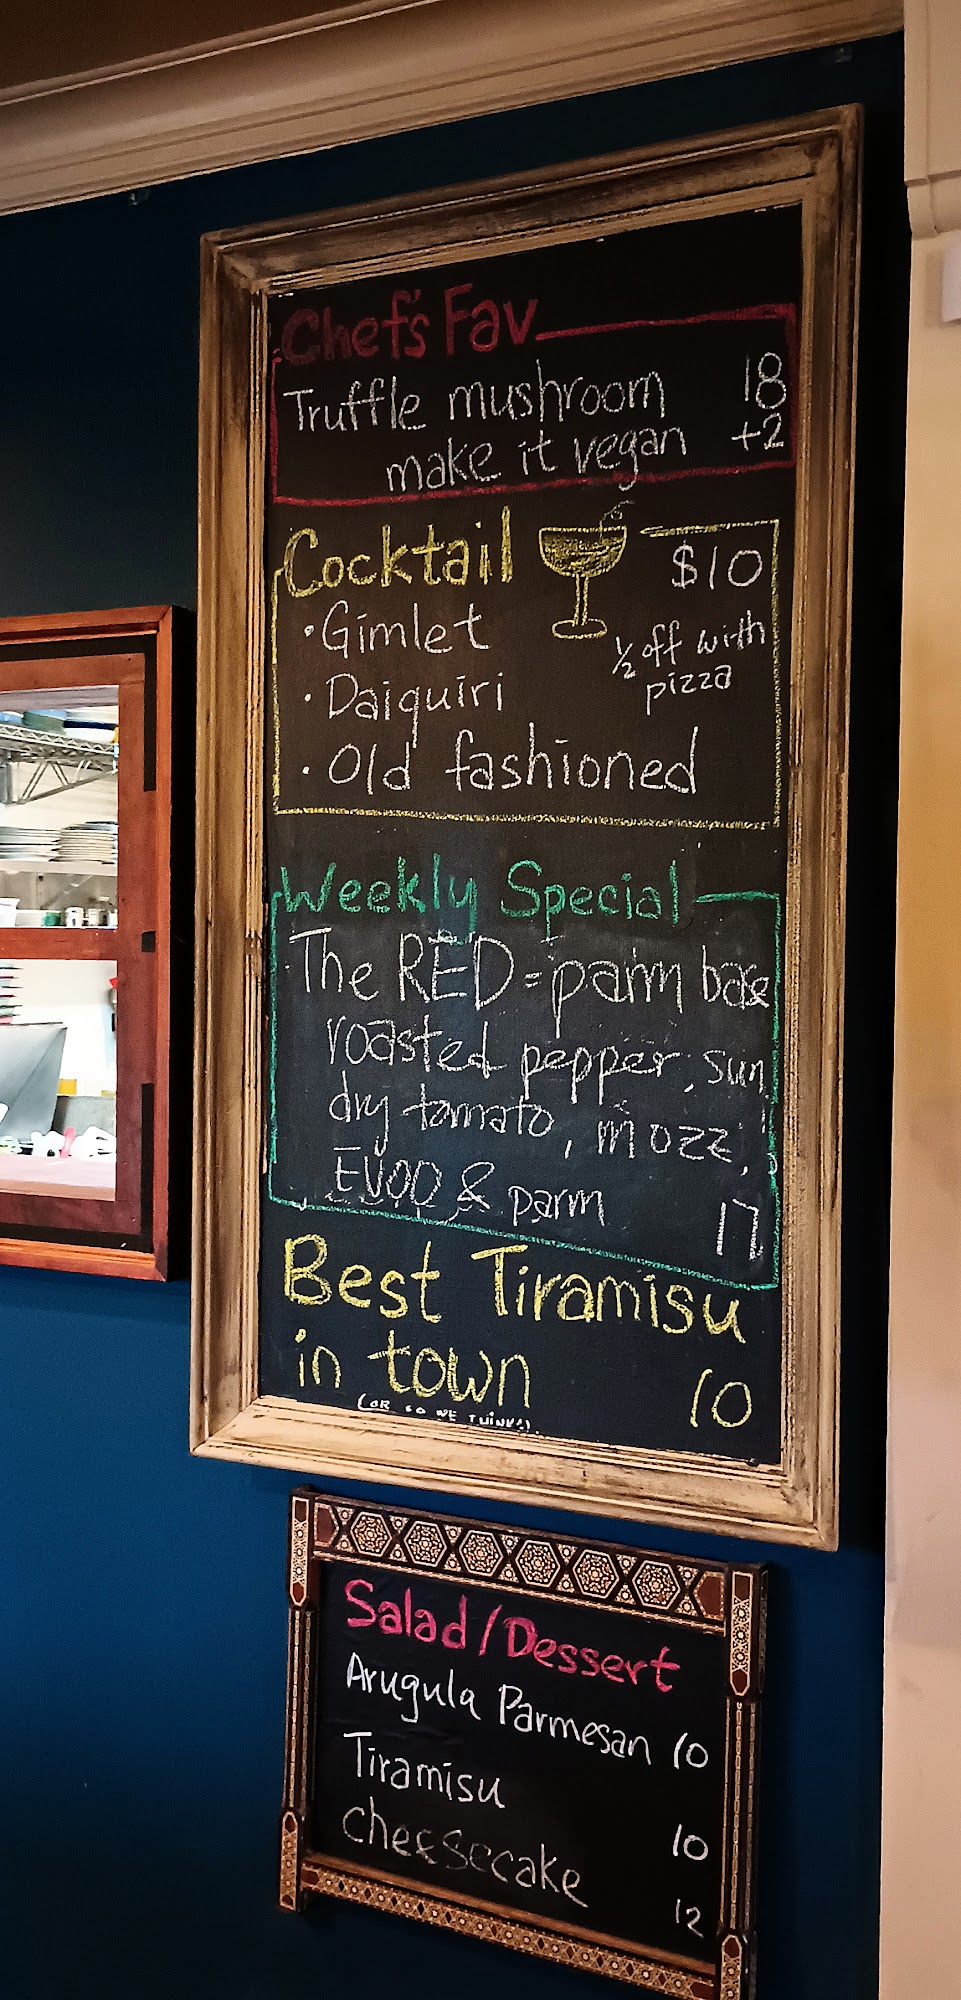 Chef's Fav
Truffle mushroom 18
make it vegan +2
Cocktail $10
• Gimlet
½ off with
pizza
• Daiquiri
• Old fashioned
Weekly Special
The RED = parm base
roasted pepper, sun
dry tomato, mozz,
EVOO & parm 17
Best Tiramisu
in town 10
(OR SO WE THINK!)
Salad/Dessert
Arugula Parmesan 10
Tiramisu 10
Cheesecake 12